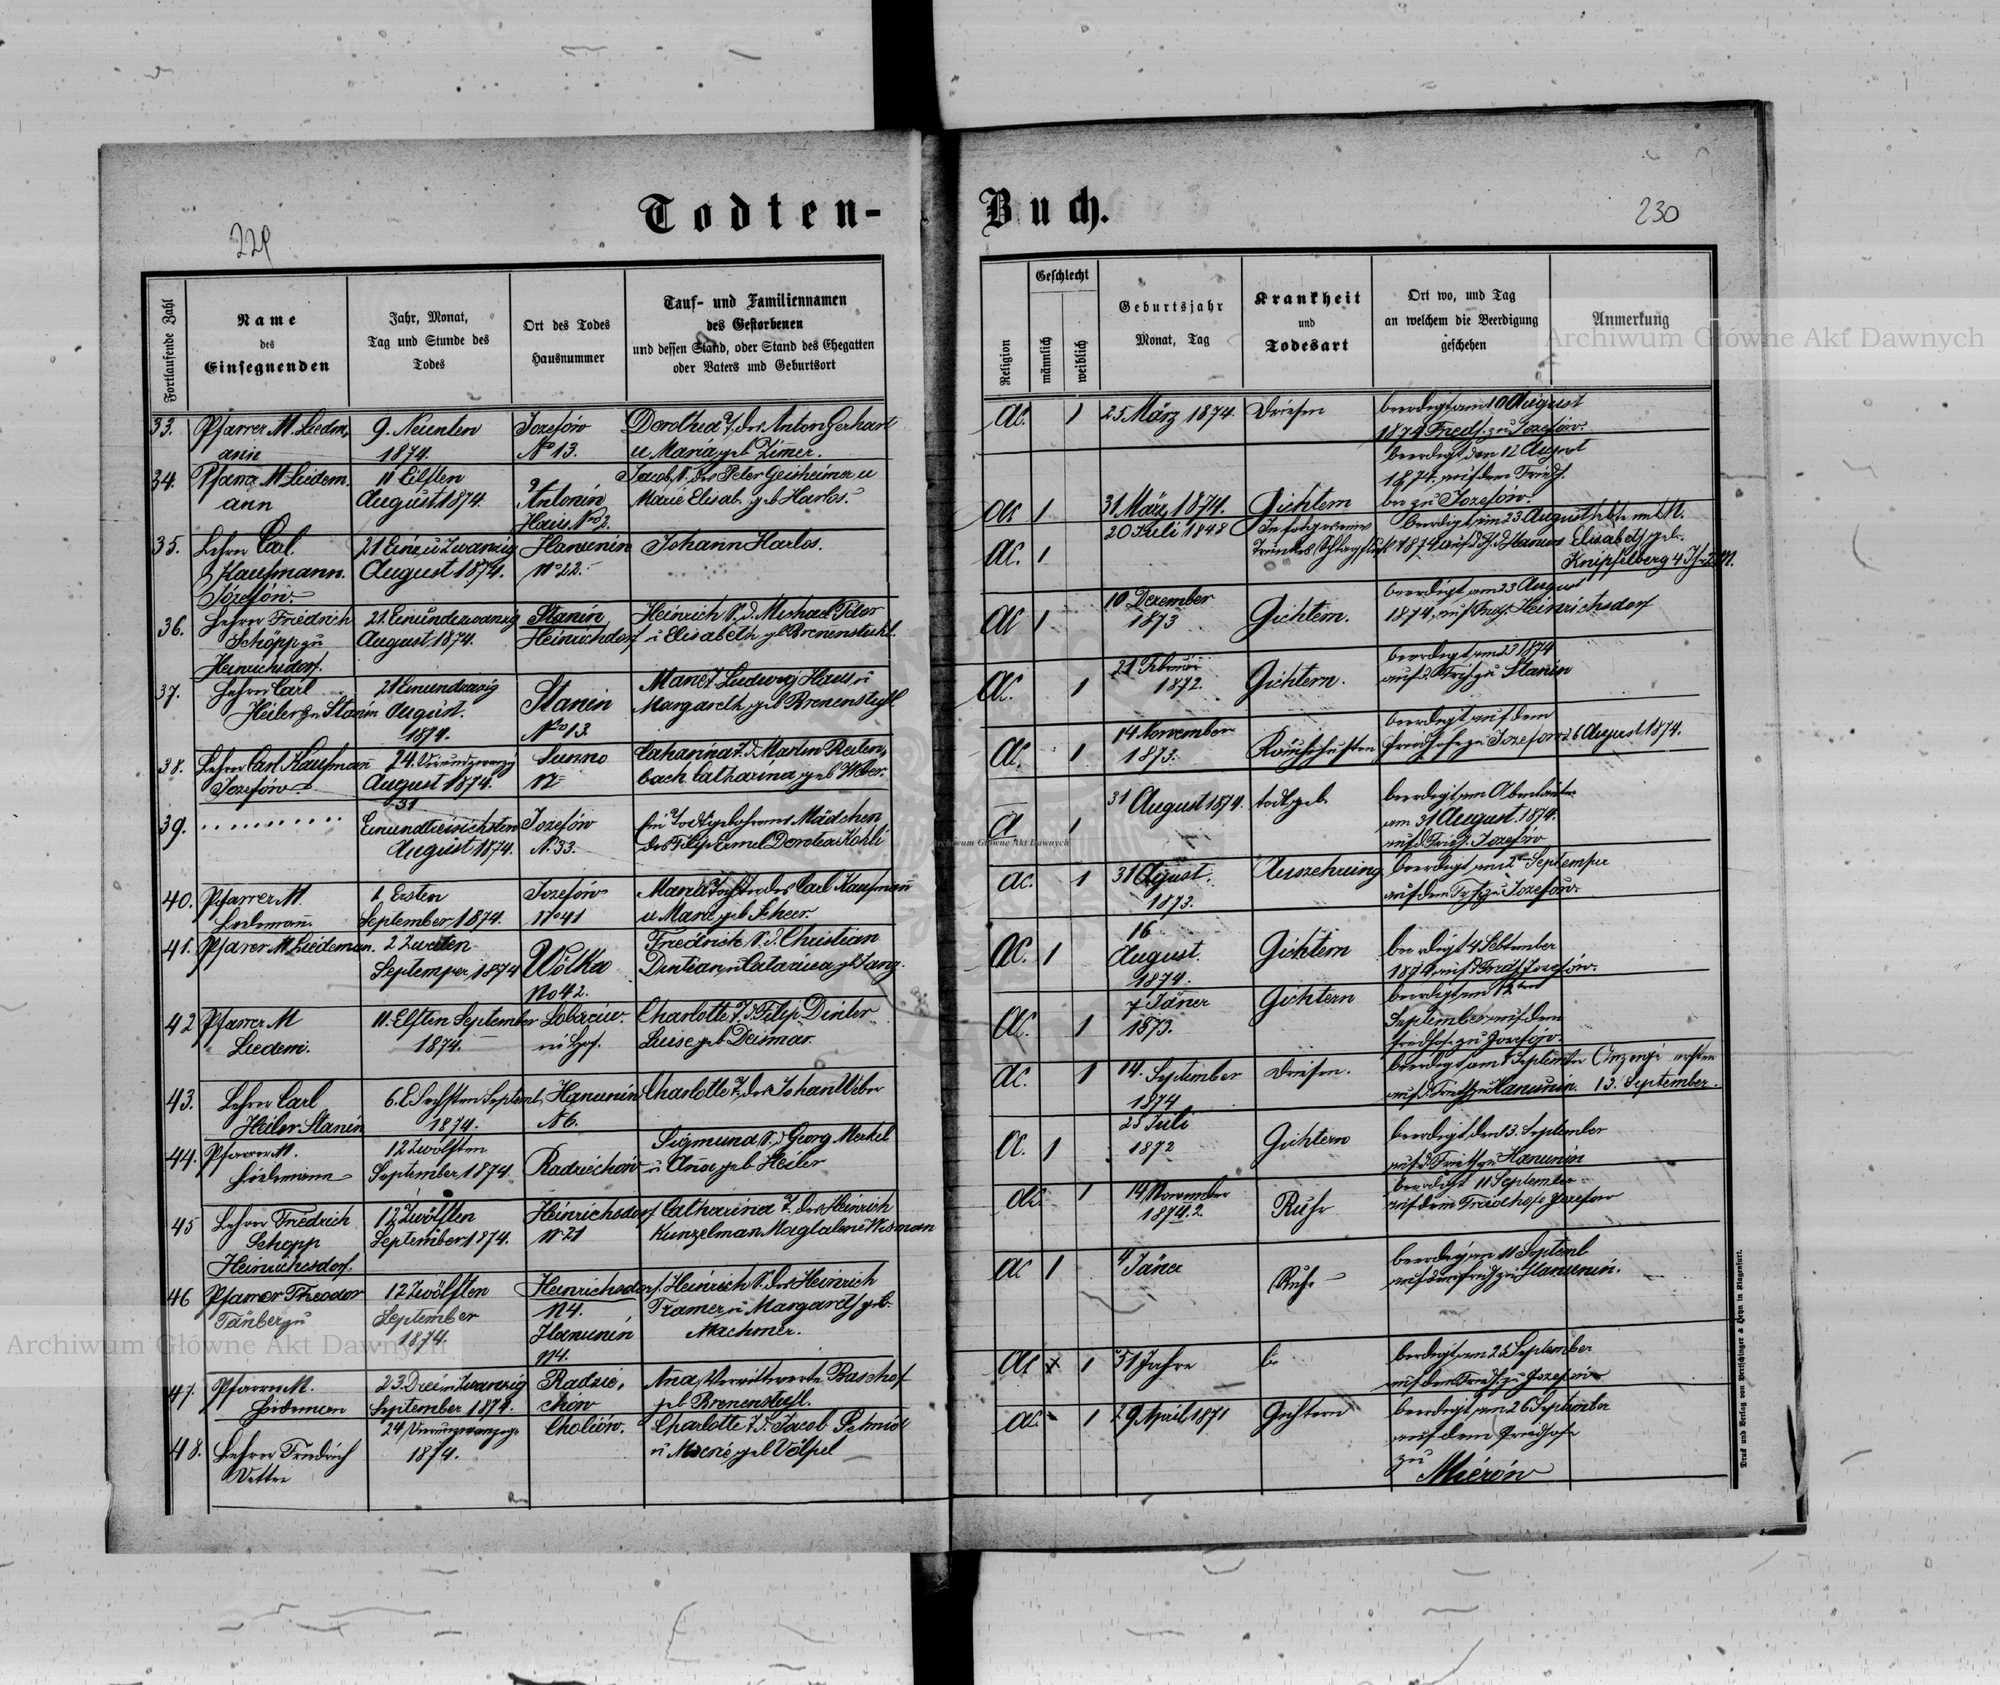 Todten-Buch.
229
230
Fortlaufende Zahl
Name
des
Einsegnenden
Jahr, Monat,
Tag und Stunde des
Todes
Ort des Todes
Hausnummer
Tauf- und Familiennamen
des Gestorbenen
und dessen Stand, oder Stand des Ehegatten
oder Vaters und Geburtsort
Religion
Geschlecht
männlich
weiblich
Geburtsjahr
Monat, Tag
Krankheit
und
Todesart
Ort wo, und Tag
an welchem die Beerdigung
geschehen
Anmerkung
Archiwum Główne Akt Dawnych
33.
Pfarrer M. Liedem
ann
9. Neunten
1874.
Jozefów
No 13.
Dorothea T. des Anton Gerhart
u Maria geb Zimer.
AC. 1
25 März 1874.
Driesen
beerdigt am 10 August
1874 Friedh. zu Jozefów.
34.
Pfarrer M Liedem
ann
11 Eilften
August 1874.
Antonin
Haus No 2.
Jacob S. des Peter Geisheimer u
Marie Elisab. geb Harlos.
AC 1
31 März 1874.
Gichtern
beerdigt den 12 August
1874. auf dem Friedh.
zu Jozefów.
35.
Lehrer Carl
Kaufmann.
Jozefów
21 Einu Zwanzig
August 1874.
Hanunin
No 22.
Johann Harlos.
AC. 1
20 Juli 1848
beerdigt am 23 August
1874
Elisabeth geb.
Knipfelberg 4 J. 2 M.
36.
Lehrer Friedrich
Schöpp zu
Heinrichsdorf.
21 Einundzwanzig
August 1874.
Stanin
Heinrichsdorf
Heinrich S. d. Michael Peter
u Elisabeth geb Brenensthul.
AC 1
10 Dezember
1873
Gichtern.
beerdigt am 23 August
1874. auf Heinrichsdorf
37.
Lehrer Carl
Heiler zu Stanin
21 Einundzwanzig
August.
1874.
Stanin
No 13.
Ludwig Haus u
Margareth geb Brenensthyl.
AC. 1
21 Februar
1872.
Gichtern.
beerdigt am 23 1874
zu Stanin
38.
Lehrer Carl Kaufmann
Jozefów
24. Vierundzwanzig
August 1874.
Sunno
No
Catharina T. d. Martin Reiten
bach Catharina geb Weber.
AC. 1
14 November
1873.
beerdigt auf dem
Friedhofe zu Jozefów 26 August 1874.
39.
31
Einunddreisichsten
August 1874.
Jozefów
N. 33.
ein Todtgebohrenes Mädchen
des Filip Ermel Dorotea Kohli
A 1
31 August 1874.
todtgeb.
beerdigt am
am 31 August. 1874.
auf d. Friedh. Jozefów
40.
Pfarrer M.
Liedemann
1 Ersten
September 1874.
Jozefów
No 41
Maria Tochter des Carl Kaufmann
u Marie geb Scheer.
AC. 1
31 August.
1873.
Auszehrung
beerdigt am 2 September
auf dem Frh. zu Jozefów.
41.
Pfarrer M Liedeman.
2 Zweiten
September 1874
Wólka
No 42.
Friedrich S. d. Christian
Catarina geb Lang.
AC. 1
16
August.
1874.
Gichtern
beerdigt 4 September
1874 auf d. Friedh Jozefów.
42
Pfarrer M
Liedem.
11. Elften September
1874.
Charlotte T. d. Filip Dinter
Luise geb Deismar.
AC. 1
7 Jäner
1873.
Gichtern
beerdigt am 12ten
September auf dem
Friedhofe zu Jozefów.
43.
Lehrer Carl
Heiler Stanin
6. Sechsten Septemb.
1874.
Hanunin
N 6.
Charlotte T. des Johan Weber
AC. 1
14. September
1874
Driesen.
beerdigt am 8 September
zu Hanunin.
13. September.
44.
Pfarrer M.
Liedemann
12 Zwölften
September 1874.
Radziechów
Sigmund S. d Georg Merkel
u Anna geb Heiler
A. 1
25 Juli
1872
Gichtern
beerdigt den 13. September
auf d. Friedh zu Hanunin
45
Lehrer Friedrich
Schopp
Heinrichsdorf.
12 Zwölften
September 1874.
Heinrichsdorf
No 21
Catharina T. des Heinrich
Kunzelman Magdalene Wisman
AC. 1
14 November
1874.2
Ruhr
beerdigt 11 September
auf dem Friedhofe Jozefow
46
Pfarrer Theodor
12 Zwölften
September
1874.
Heinrichsdorf
N 4.
Hanunin
N 4.
Heinrich S. des Heinrich
Tramer u Margareth geb.
Machmer.
AC 1
4 Jäner
Ruhr
beerdigt am 11 Septemb
auf dem Friedh zu Hanunin.
47.
Pfarrer M.
Liedeman
23. Dreiu Zwanzig
September 1874.
Radzie-
chów
Ana, Verwittwerte Baschof
geb Brenensthyl.
AC x 1
51 Jahre
beerdigt am 25 September
auf dem Friedh. zu Jozefów
48.
Lehrer Friedrich
Vetter
24 Vierunzwanzigs
1874.
Cholejów.
Charlotte T. d. Jacob Schmid
u Marie geb Völpel
AC. 1
29 April 1871
Gichtern
beerdigt am 26 September
auf dem Friedhofe
zu
Mierów
Druck und Verlag von Bertschinger & Heyn in Klagenfurt.
Archiwum Główne Akt Dawnych
Archiwum Główne Akt Dawnych